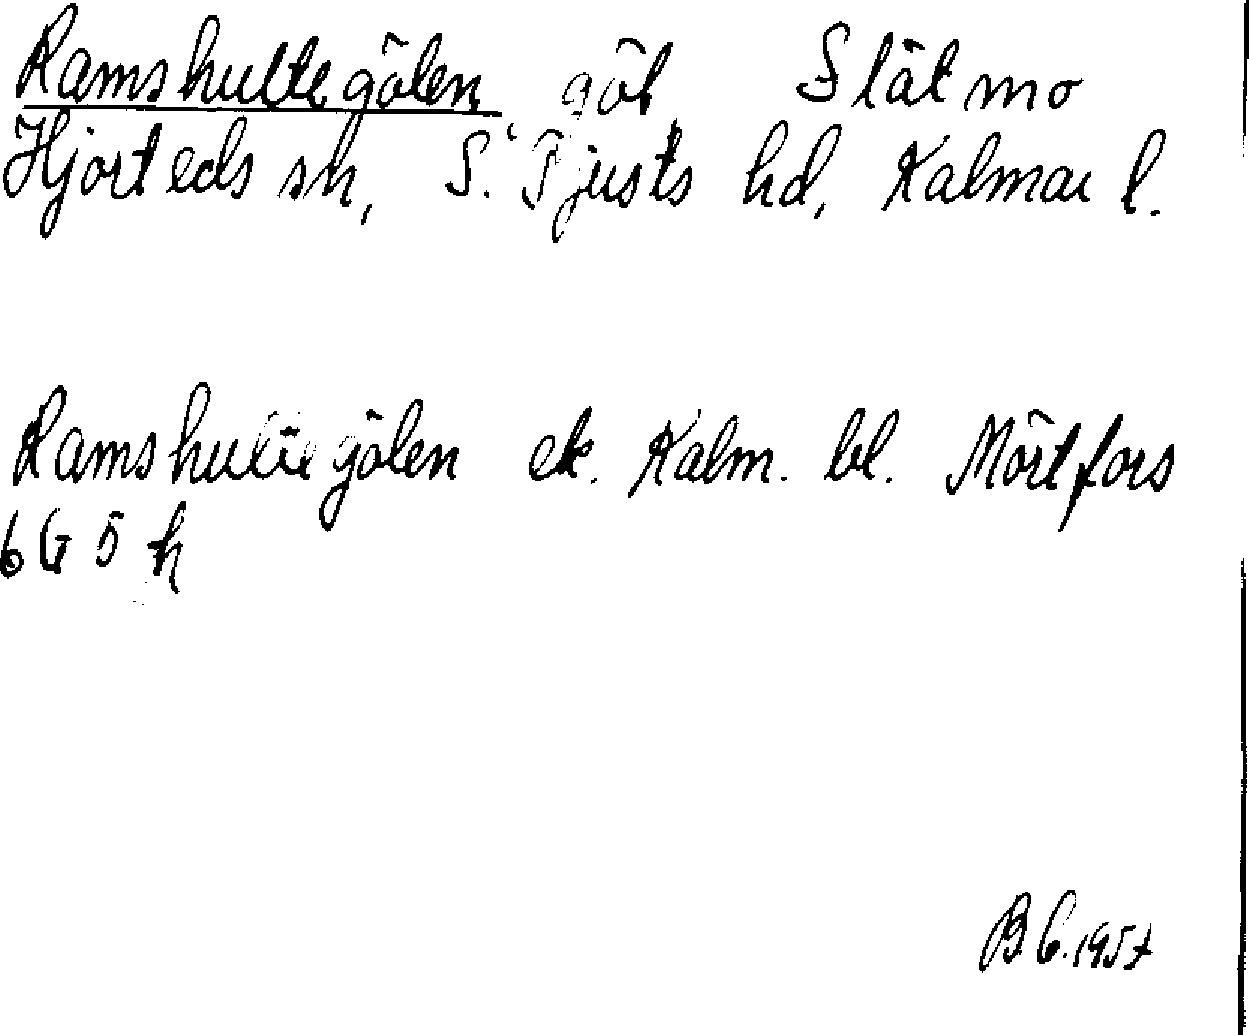 Ramshultegölen göl Slätmo
Hjorteds sn, S. Tjusts hd, Kalmar l.
Ramshultegölen ek. Kalm. bl. Mörtfors
6G 5 h
B G. 1957